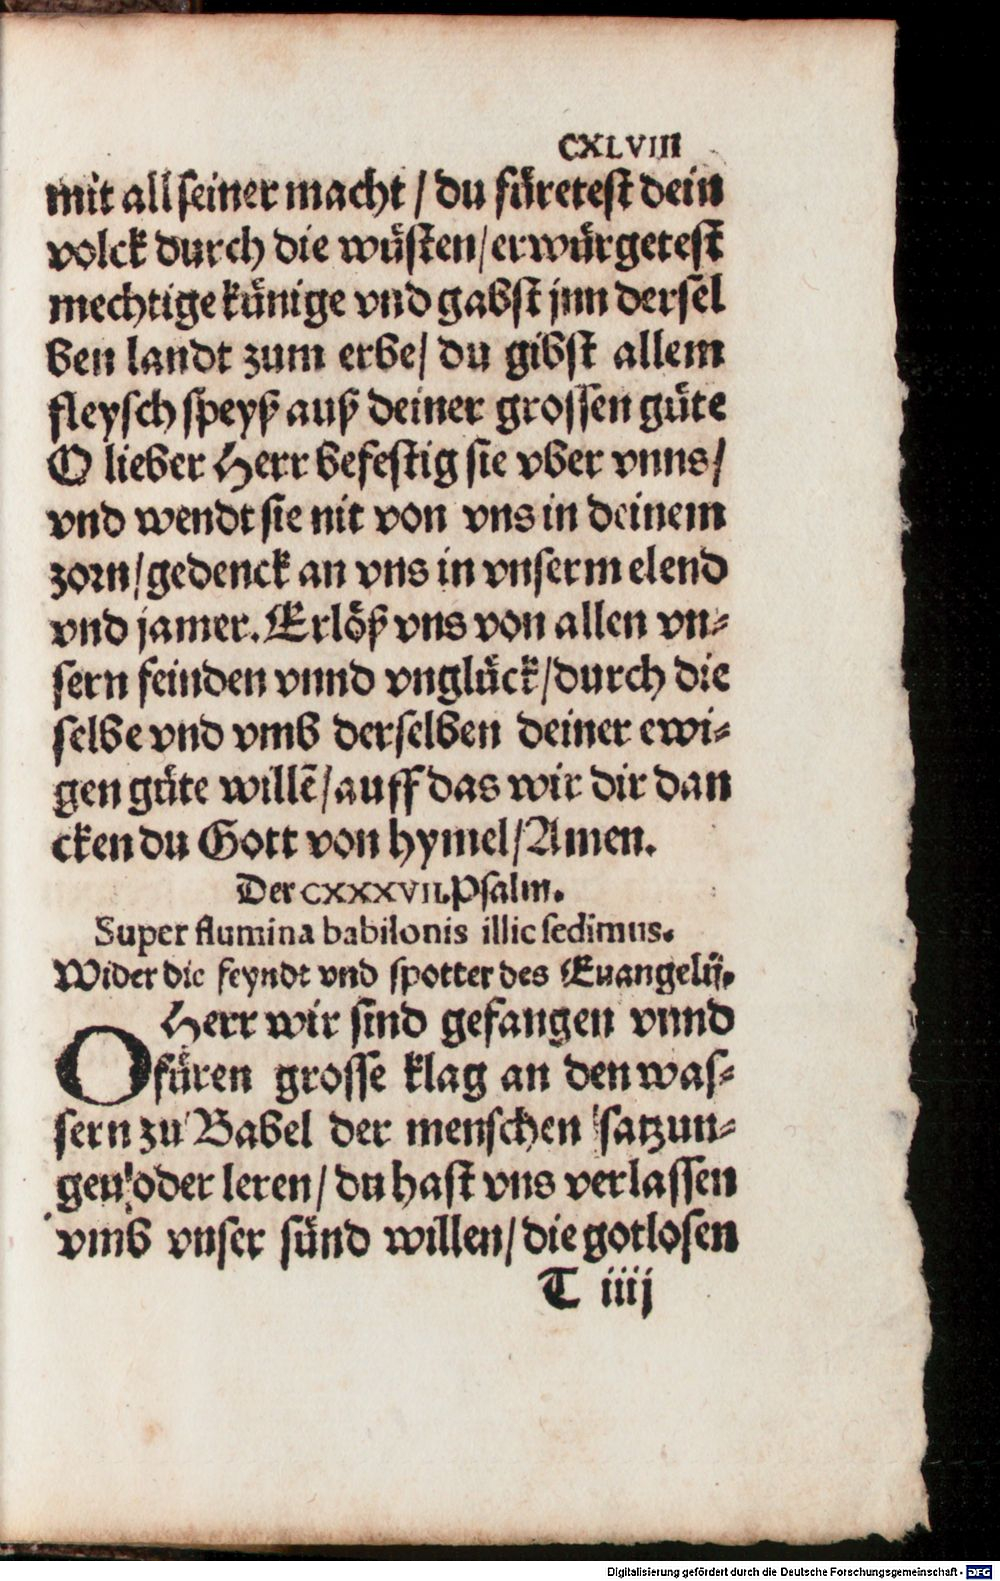 CXLVIII
mit all seiner macht / du fuͤretest dein
volck durch die wuͤsten / erwuͤrgetest
mechtige kuͤnige vnd gabst jnn dersel
ben landt zum erbe / du gibst allem
fleysch speyß auß deiner grossen guͤte
O lieber Herr befestig sie vber vnns /
vnd wendt sie nit von vns in deinem
zorn / gedenck an vns in vnserm elend
vnd jamer. Erloͤß vns von allen vn⸗
sern feinden vnnd vngluͤck / durch die
selbe vnd vmb derselben deiner ewi⸗
gen guͤte willē / auff das wir dir dan
cken du Gott von hymel / Amen.
Der CXXXVII. Psalm.
Super flumina babilonis illic sedimus.
Wider die feyndt vnd spotter des Euangelij.
O Herr wir sind gefangen vnnd
fuͤren grosse klag an den was⸗
sern zu Babel der menschen satzun⸗
gen oder leren / du hast vns verlassen
vmb vnser suͤnd willen / die gotlosen
T iiij
Digitalisierung gefördert durch die Deutsche Forschungsgemeinschaft - DFG